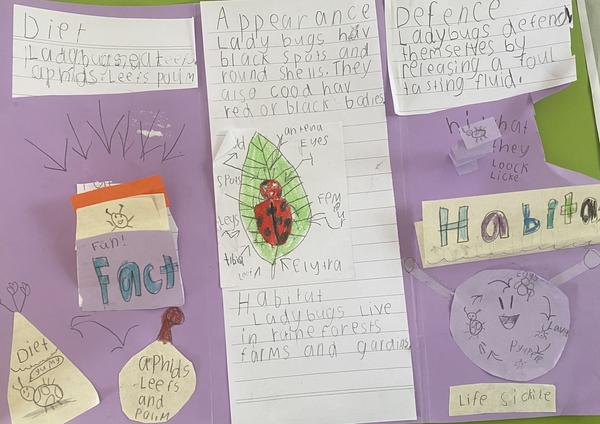 Diet
Ladybugs eat
aphids Leefs palim
Fun!
Fact
Diet
yumy
aphids
Leefs
and
palim
Appearance
Lady bugs hav
black spots and
round shells. They
also cood hav
red or black bodies
antena
Eyes
spots
Legs
Femur
tibia
Elytra
Habitat
Ladybugs Live
in rainforests
farms and gardins
Defence
Ladybugs defend
themselves by
releasing a foul
tasting fluid.
what
they
loock
Licke
Habita
Eggs
Larva
Pupa
Life Sickle